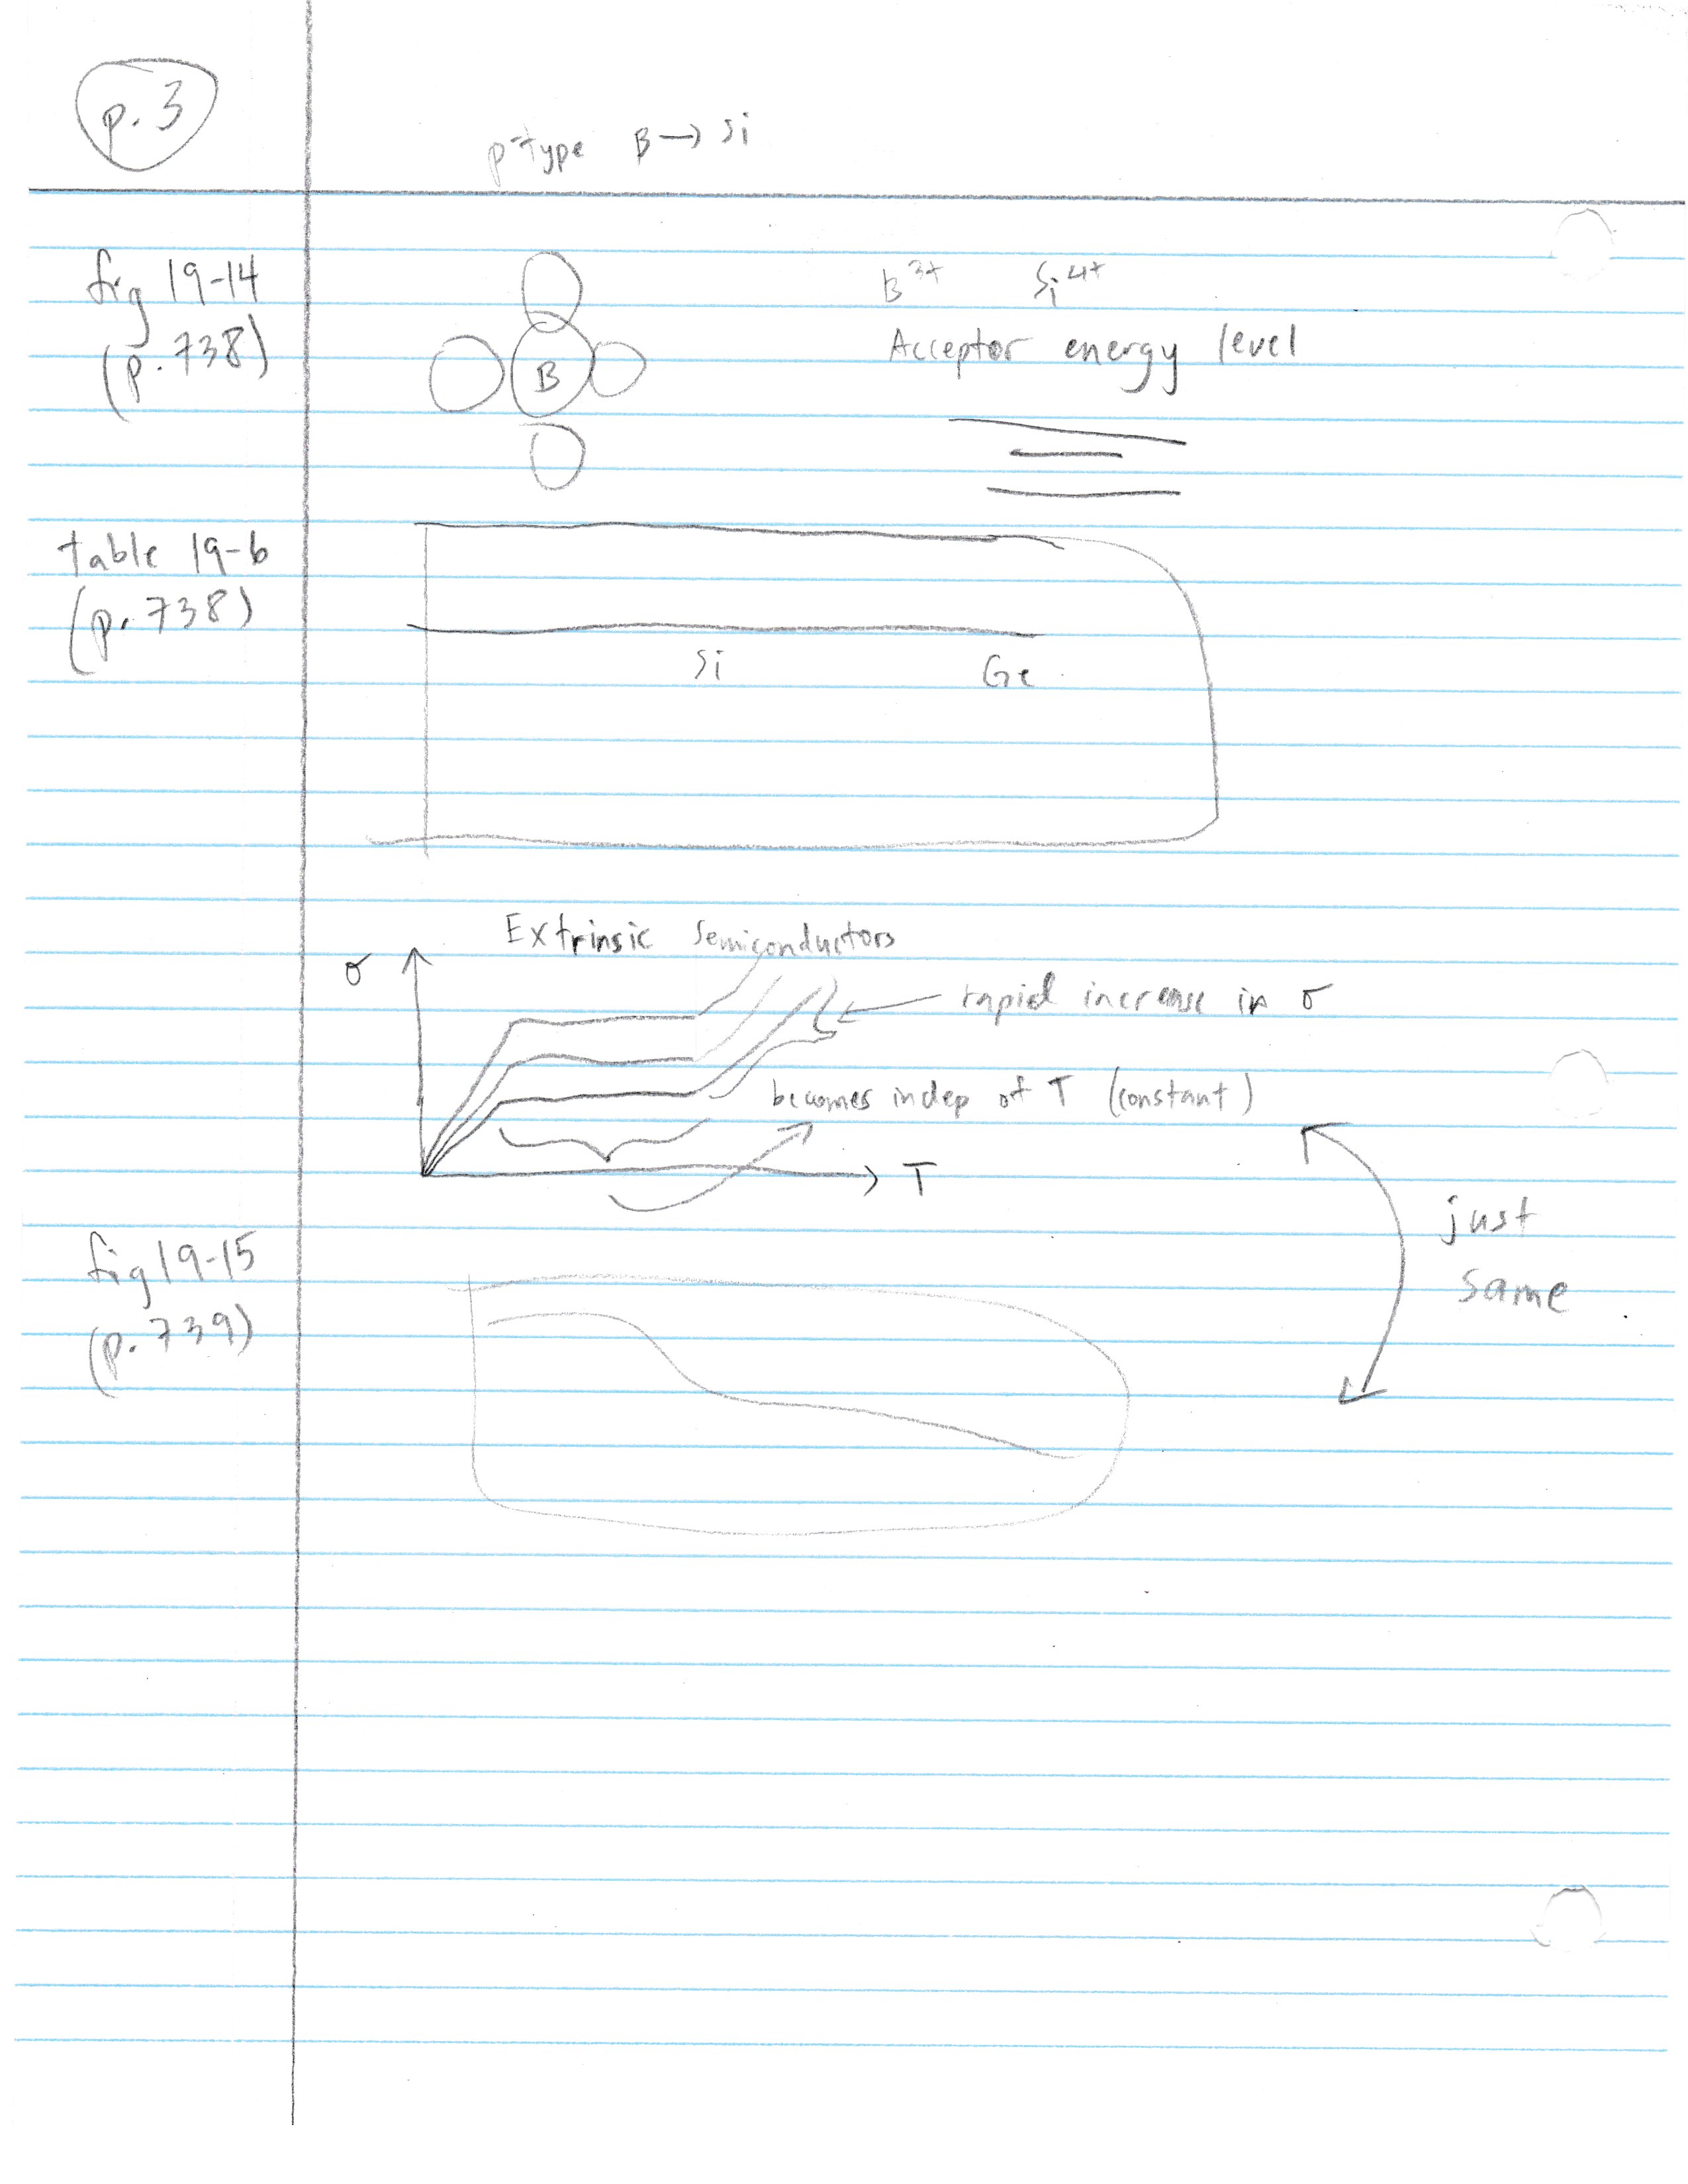 p.3
p-type B → Si
fig 19-14
(p.738)
B
B3+ Si4+
Acceptor energy level
table 19-6
(p.738)
Si Ge
Extrinsic Semiconductors
σ
rapid increase in σ
becomes indep of T (constant)
T
just
same
fig 19-15
(p.739)